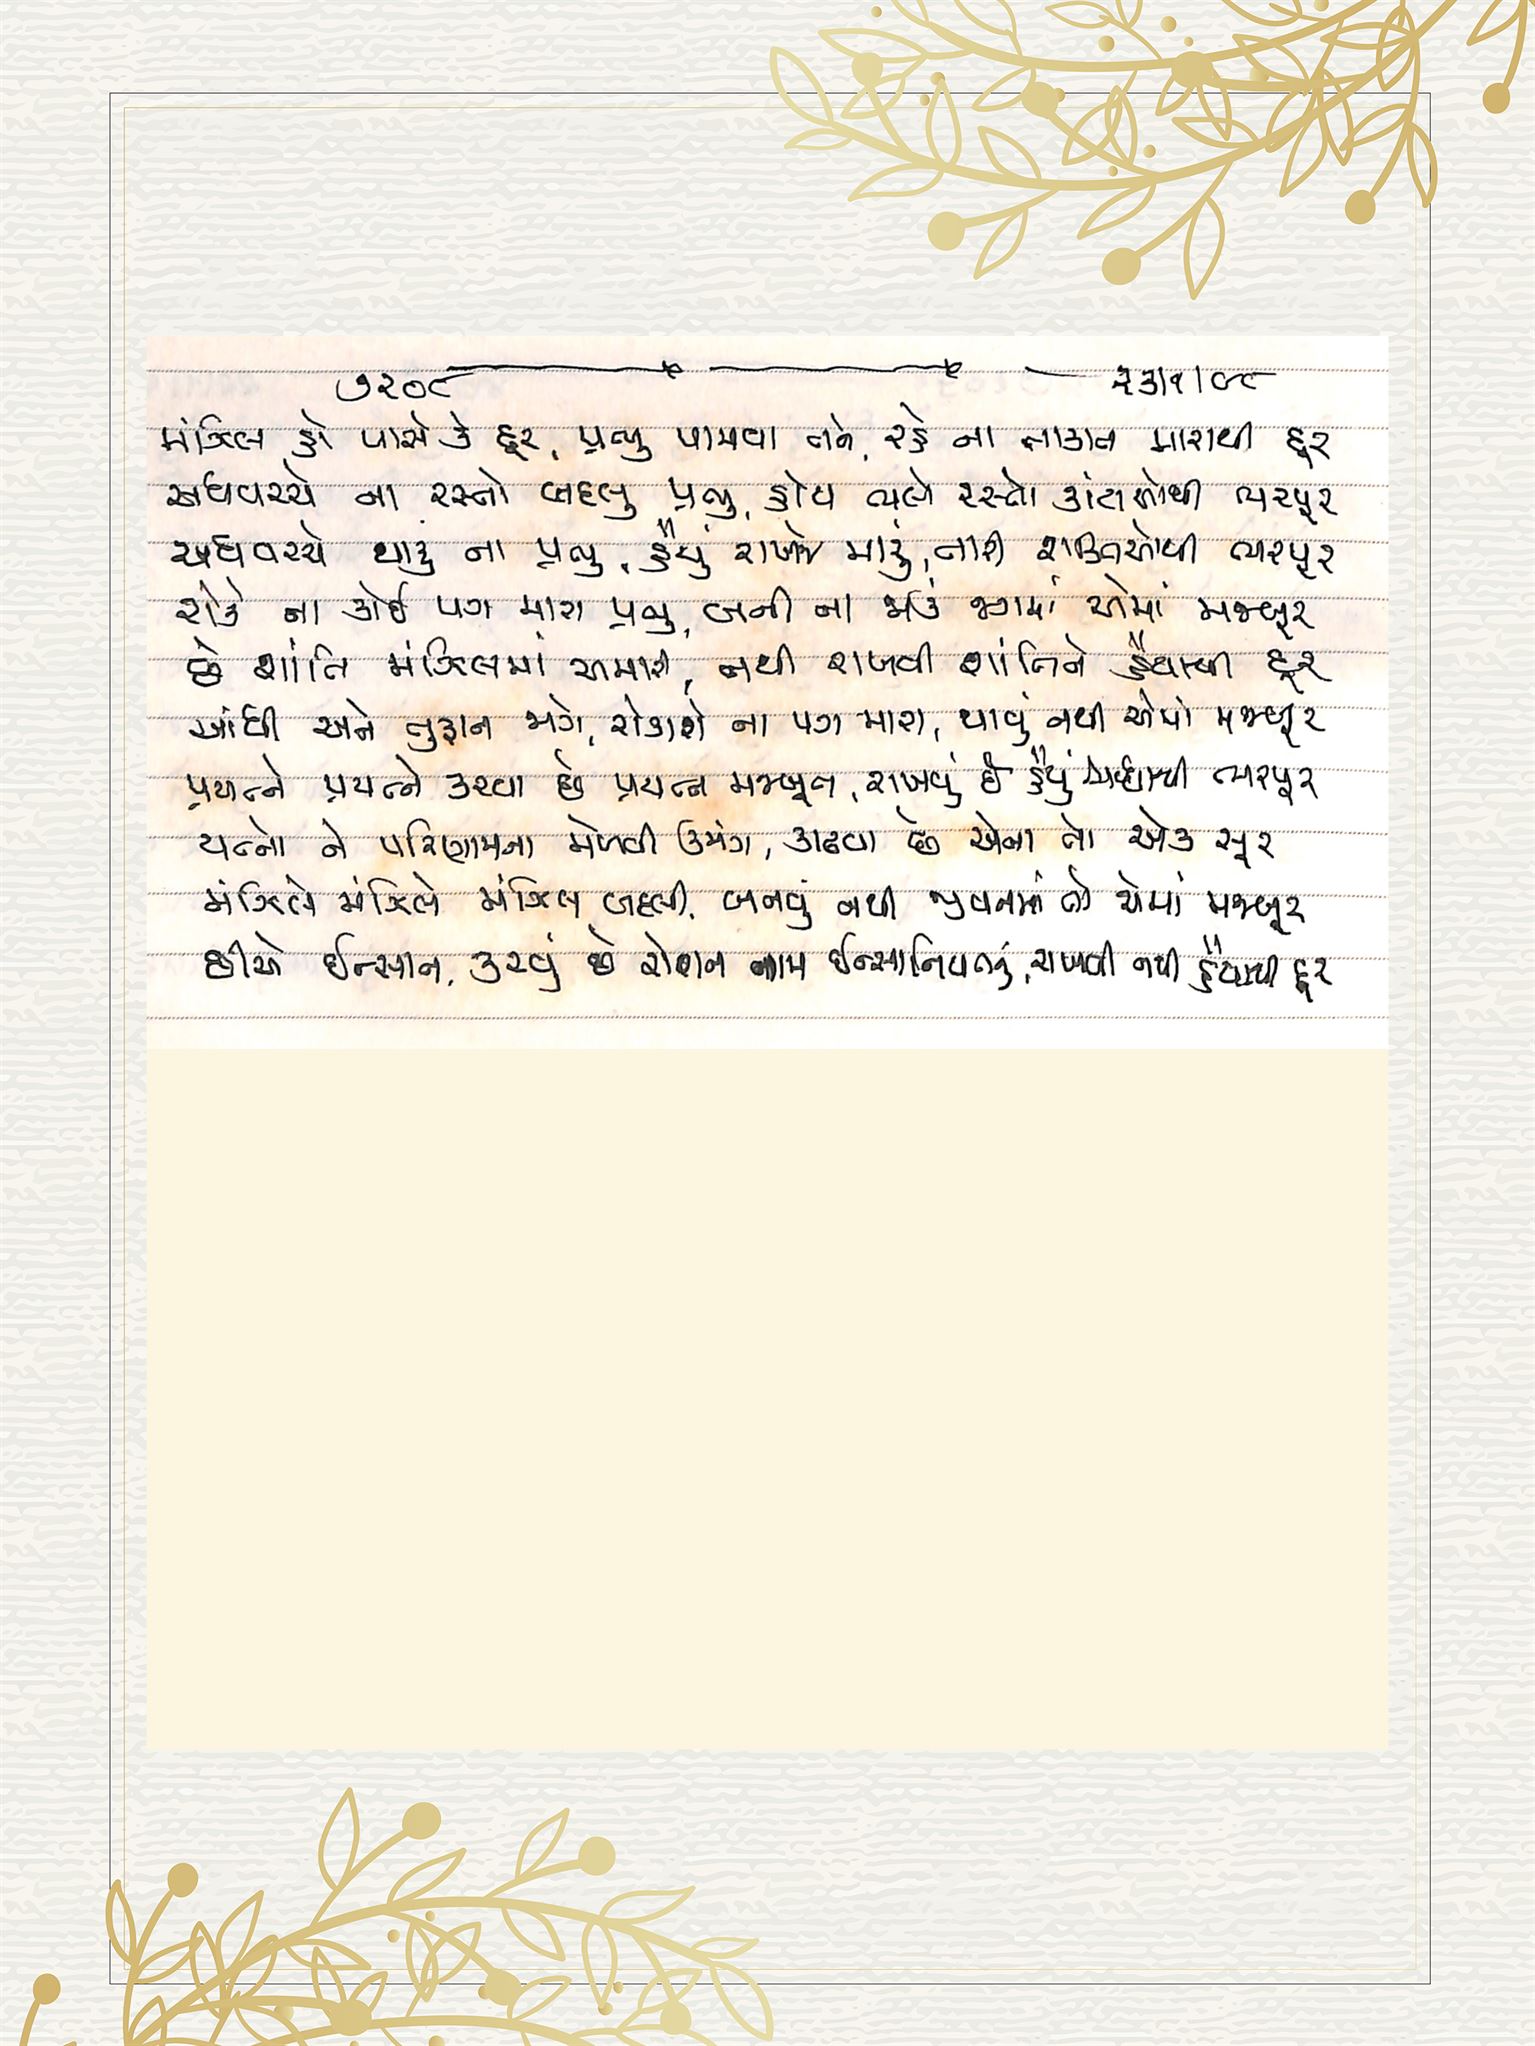 ૭૨૦૮ ૨૩/૧/૦૮
મંઝિલ હો પાસે કે દૂર, પ્રભુ પામવા તને, રહે ના તાકાત મારાથી દૂર
અધવચ્ચે ના રસ્તો બદલું પ્રભુ, હોય ભલે રસ્તો કાંટાઓથી ભરપૂર
અધવચ્ચે થાકું ના પ્રભુ, હૈયું રાખજે મારું, તારી શક્તિઓથી ભરપૂર
રોકે ના કોઈ પગ મારા પ્રભુ, બની ના જાઉં જગમાં એમાં મજબૂર
છે શાંતિ મંઝિલમાં અમારી, નથી રાખવી શાંતિને હૈયાથી દૂર
આંધી અને તુફાન જાગે, રોકાશે ના પગ મારા, થાવું નથી એમાં મજબૂર
પ્રયત્ને પ્રયત્ને કરવા છે પ્રયત્ન મજબૂત, રાખવું છે હૈયું શ્રદ્ધાથી ભરપૂર
યત્નો ને પરિણામના મેળવી ઉમંગ, કાઢવા છે એના તો એક સૂર
મંઝિલે મંઝિલે મંઝિલ બદલી, બનવું નથી જીવનમાં તો એમાં મજબૂર
છીએ ઈન્સાન, કરવું છે રોશન નામ ઈન્સાનિયતનું, રાખવી નથી હૈયાથી દૂર